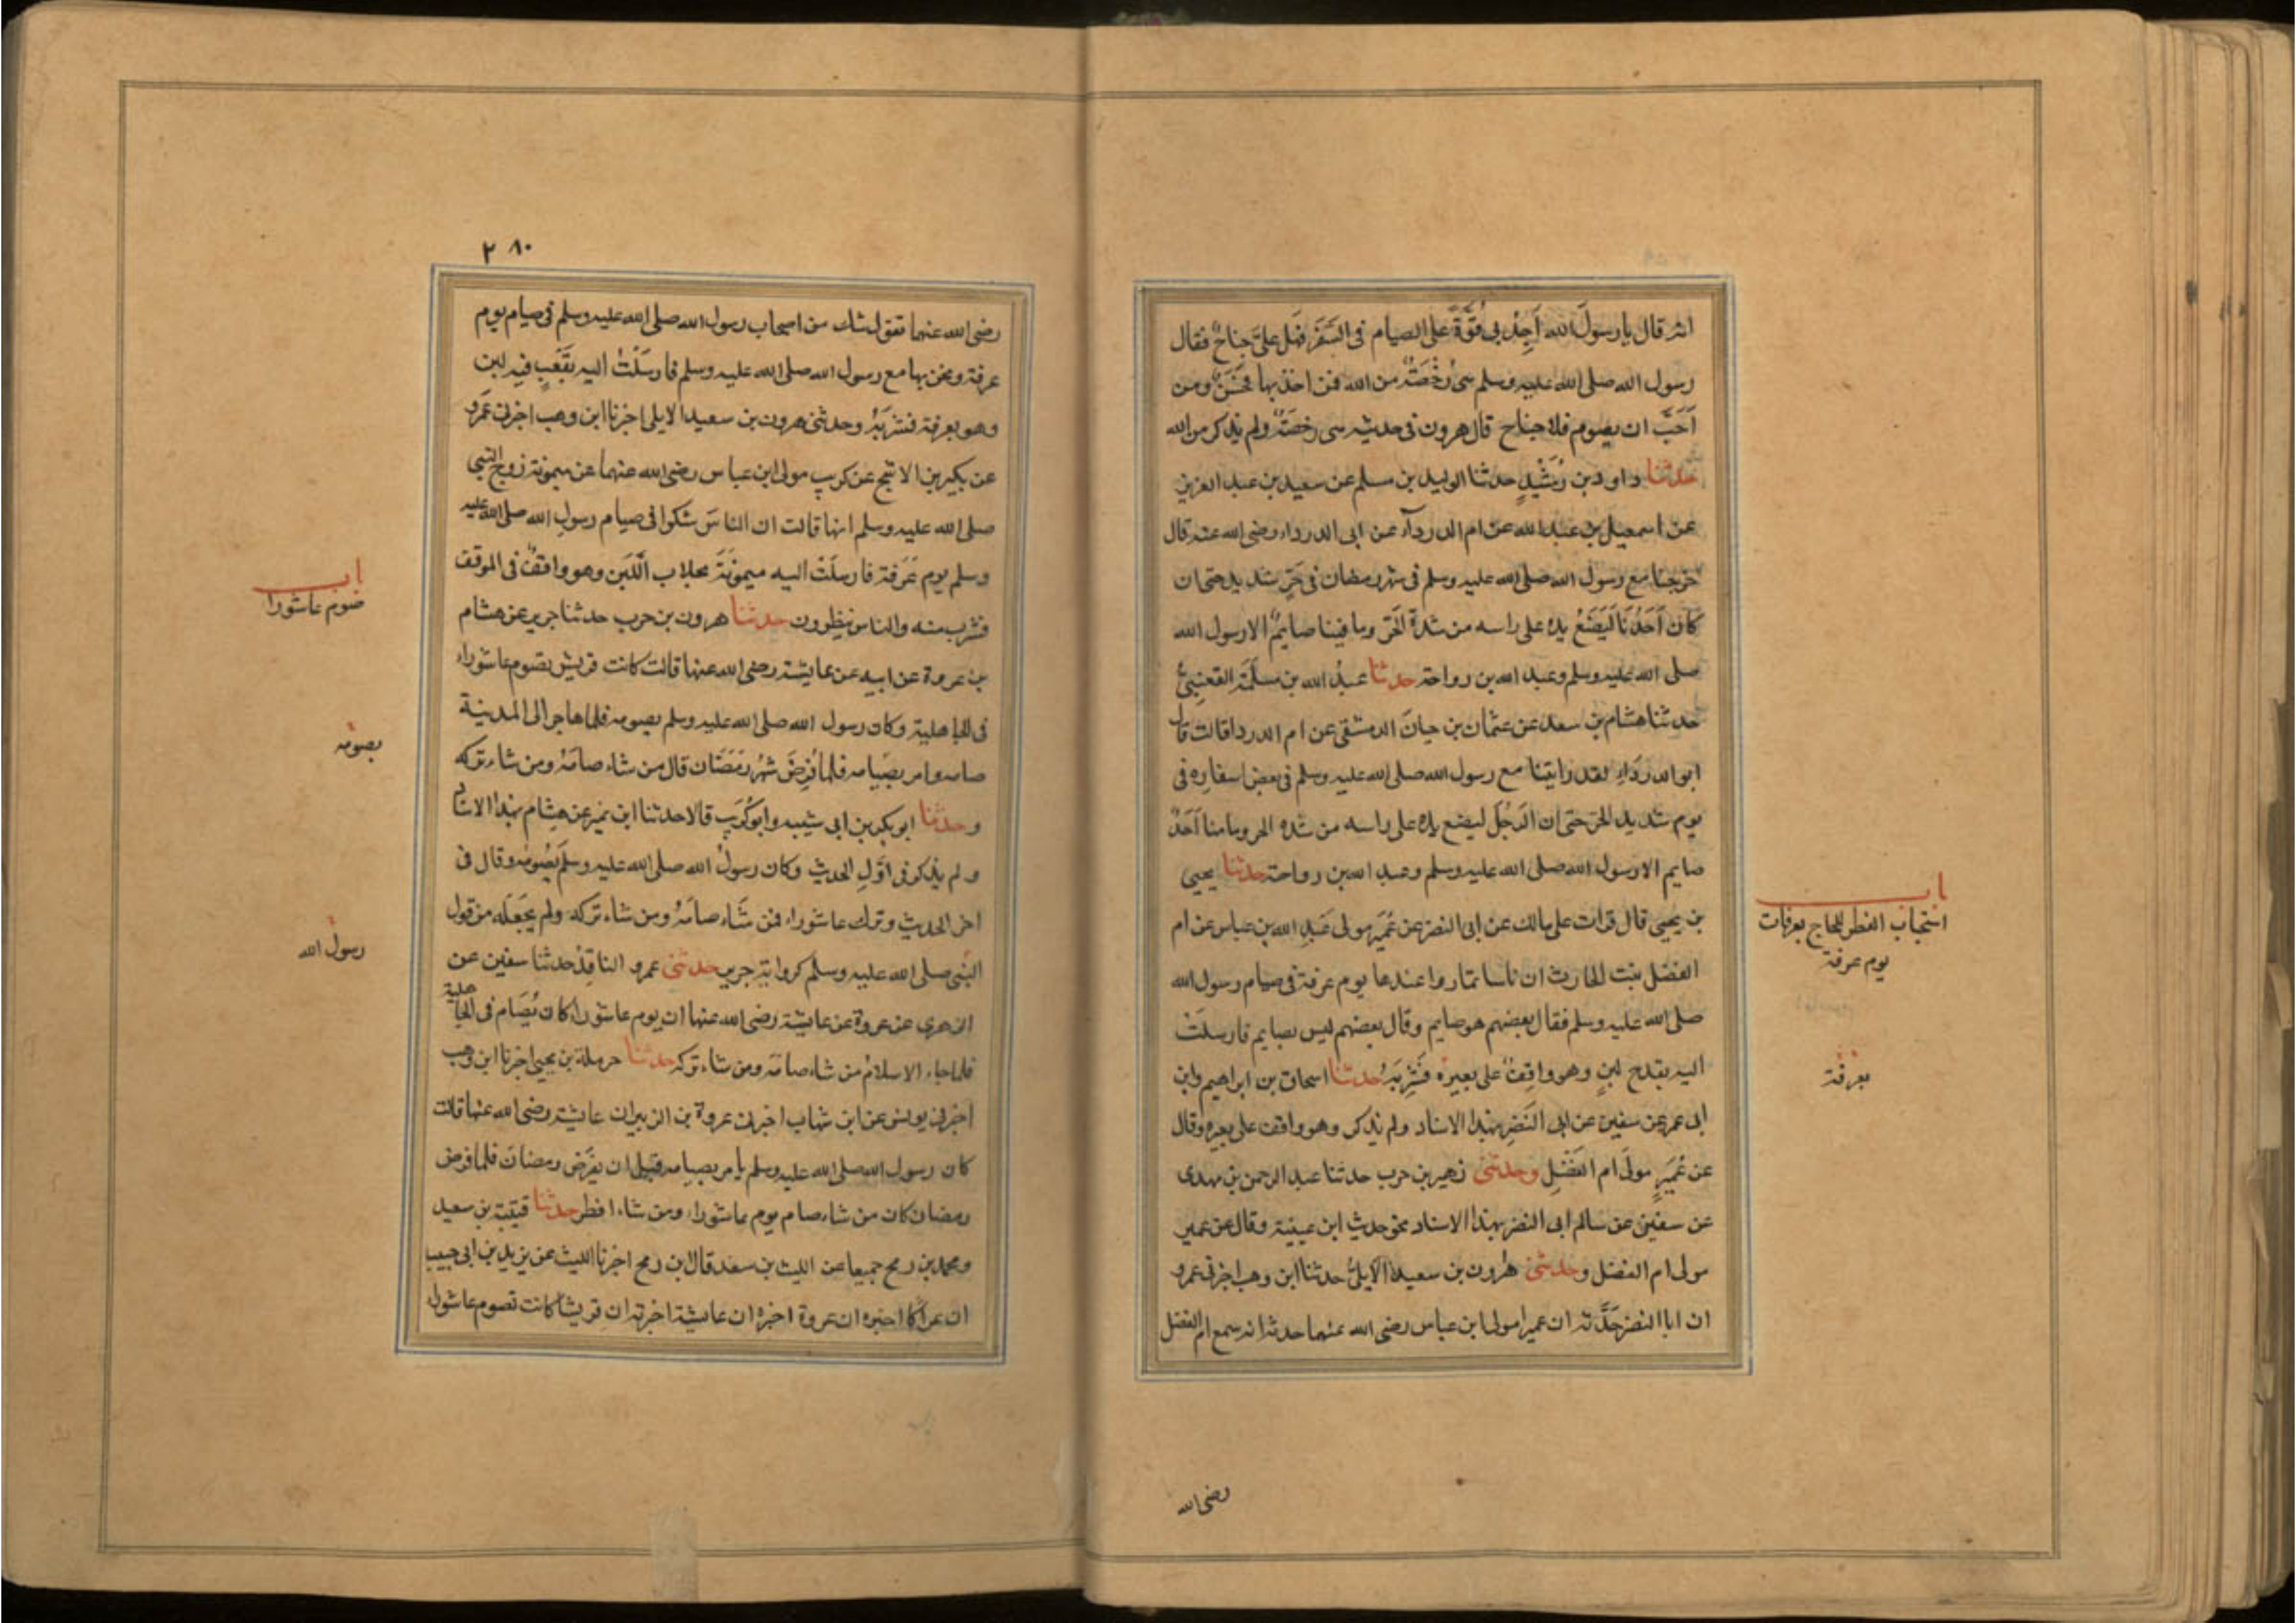 انه قال يا رسولَ الله أَجِدُ بي قُوَّةً على الصيام في السَّفَرِ فهَل علىَّ جناحٌ فقال
رسول الله صلى الله عليه وسلم هى رُخْصَةٌ من الله فمن اخذ بها فحَسَنٌ ومن
اَحَبَّ ان يصوم فلا جناح قال هرون فى حديثه هى رخصَةٌ ولم يذكر من الله
حدثنا داود بن رُشَيْدٍ حدثنا الوليد بن مسلم عن سعيد بن عبد العزيز
عن اسمعيل بن عبد الله عن ام الدرداء عن ابى الدرداء رضى الله عنه قال
خرجنا مع رسول الله صلى الله عليه وسلم فى شهر رمضان فى حَرٍّ شديد حتى ان
كان اَحَدُنَا لَيَضَعُ يده على راسه من شدة الحَرّ وما فينا صايمٌ الا رسول الله
صلى الله عليه وسلم وعبد الله بن رواحة حدثنا عبدُ الله بن مسلَمَة القعنبىُّ
حدثنا هشام بن سعد عن عثمان بن حيانَ الدمشقى عن ام الدردا قالت قال
ابو الدردَاءِ لقد رايتنا مع رسول الله صلى الله عليه وسلم فى بعض اسفاره فى
يوم شديد الحرّ حتى ان الرَّجُلَ ليضع يده على راسه من شده الحر وما منا اَحَدٌ
صايم الا رسول الله صلى الله عليه وسلم وعبد الله بن رواحة حدثنا يحيى
بن يحيى قال قرات على مالك عن ابى النضر عن عُمَيْر مولى عَبْدِ الله بن عباس عن ام
الفضل بنت الحارث ان ناسا تماروا عندها يوم عرفة فى صيام رسول الله
صلى الله عليه وسلم فقال بعضهم هو صايم وقال بعضهم ليس بصايم فارسلَتْ
اليه بقدح لبنٍ وهو واقِفٌ على بعيره فَشَرِبَهُ حدثنا اسحاق بن ابراهيم وابن
ابى عمر عن سفين عن ابى النَضْرِ بهذا الاسناد ولم يذكر وهو واقف على بعيره وقال
عن عُمَيرٍ مولَى ام الفَضْلِ وحدثنى زهير بن حرب حدثنا عبد الرحمن بن مهدى
عن سفين عن سالم ابى النضر بهذا الاسناد نحو حديث ابن عيينة وقال عن عمير
مولى ام الفضل وحدثنى هٰرون بن سعيدٍ الاَيلىُّ حدثنا ابن وهب اخبرنى عمرو
ان ابا النضر حَدَّثه ان عميرا مولى ابن عباس رضى الله عنهما حدثه انه سمع ام الفضل
باب
استحباب الفطر للحاج بعرفات
يوم عرفة
بعرفة
رضى الله
٢٨٠
رضى الله عنها تقول شك من اصحاب رسول الله صلى الله عليه وسلم فى صيام يوم
عرفة ونحن بها مع رسول الله صلى الله عليه وسلم فارسَلْتُ اليه بقَعْبٍ فيه لبن
وهو بعرفة فشربَهُ وحدثنى هرون بن سعيد الايلى اخبرنا ابن وهب اخبرنى عَمرو
عن بكير بن الاشج عن كريب مولى ابن عباس رضى الله عنهما عن ميمونة زوج النبى
صلى الله عليه وسلم انها قالت ان الناسَ شكوا فى صيام رسولِ الله صلى الله عليه
وسلم يوم عَرَفة فارسلَتْ اليه ميمونَةُ بحلاب اللَّبَن وهو واقفٌ فى الموقف
فشرب منه والناس ينظرون حدثنا هرون بن حرب حدثنا جرير عن هشام
بن عروة عن ابيه عن عايشة رضى الله عنها قالت كانت قريش تصوم عاشوراء
فى الجاهلية وكان رسول الله صلى الله عليه وسلم يصومه فلما هاجر الى المدينة
صامه وامر بصيَامه فلما فُرِضَ شهرُ رَمَضَان قال من شاء صامَهُ ومن شاء تركه
وحدثنا ابو بكر بن ابى شيبه وابو كُرَيب قالا حدثنا ابن نمير عن هشام بهذا الاسناد
ولم يذكر فى اوَّلِ الحديث وكان رسولُ الله صلى الله عليه وسلم يَصُومُه وقال فى
اخر الحديث وترك عاشوراء فمن شَاء صامَهُ ومن شاء تركه ولم يجعَلْه من قول
النبى صلى الله عليه وسلم كرواية جرير حدثنى عمرو الناقِدُ حدثنا سفين عن
الزهرى عن عروة عن عايشة رضى الله عنها ان يوم عاشوراء كان يُصَام فى الجاهلية
فلما جاء الاسلامُ من شاء صامَه ومن شاء تركه حدثنا حرملة بن يحيى اخبرنا ابن وهب
اخبرنى يونس عن ابن شهاب اخبرنى عروة بن الزبير ان عايشة رضى الله عنها قالت
كان رسول الله صلى الله عليه وسلم يامر بصيامه قبل ان يفرَض رمضان فلما فرض
رمضان كان من شاء صام يوم عاشوراء ومن شاء افطر حدثنا قتيبة بن سعيد
ومحمد بن رمح جميعا عن الليث بن سعد قال ابن رمح اخبرنا الليث عن يزيد بن ابى حبيب
ان عراكا اخبره ان عروة اخبره ان عايشة اخبرته ان قريشا كانت تصوم عاشورا
باب
صوم عاشورا
يصومه
رسول الله